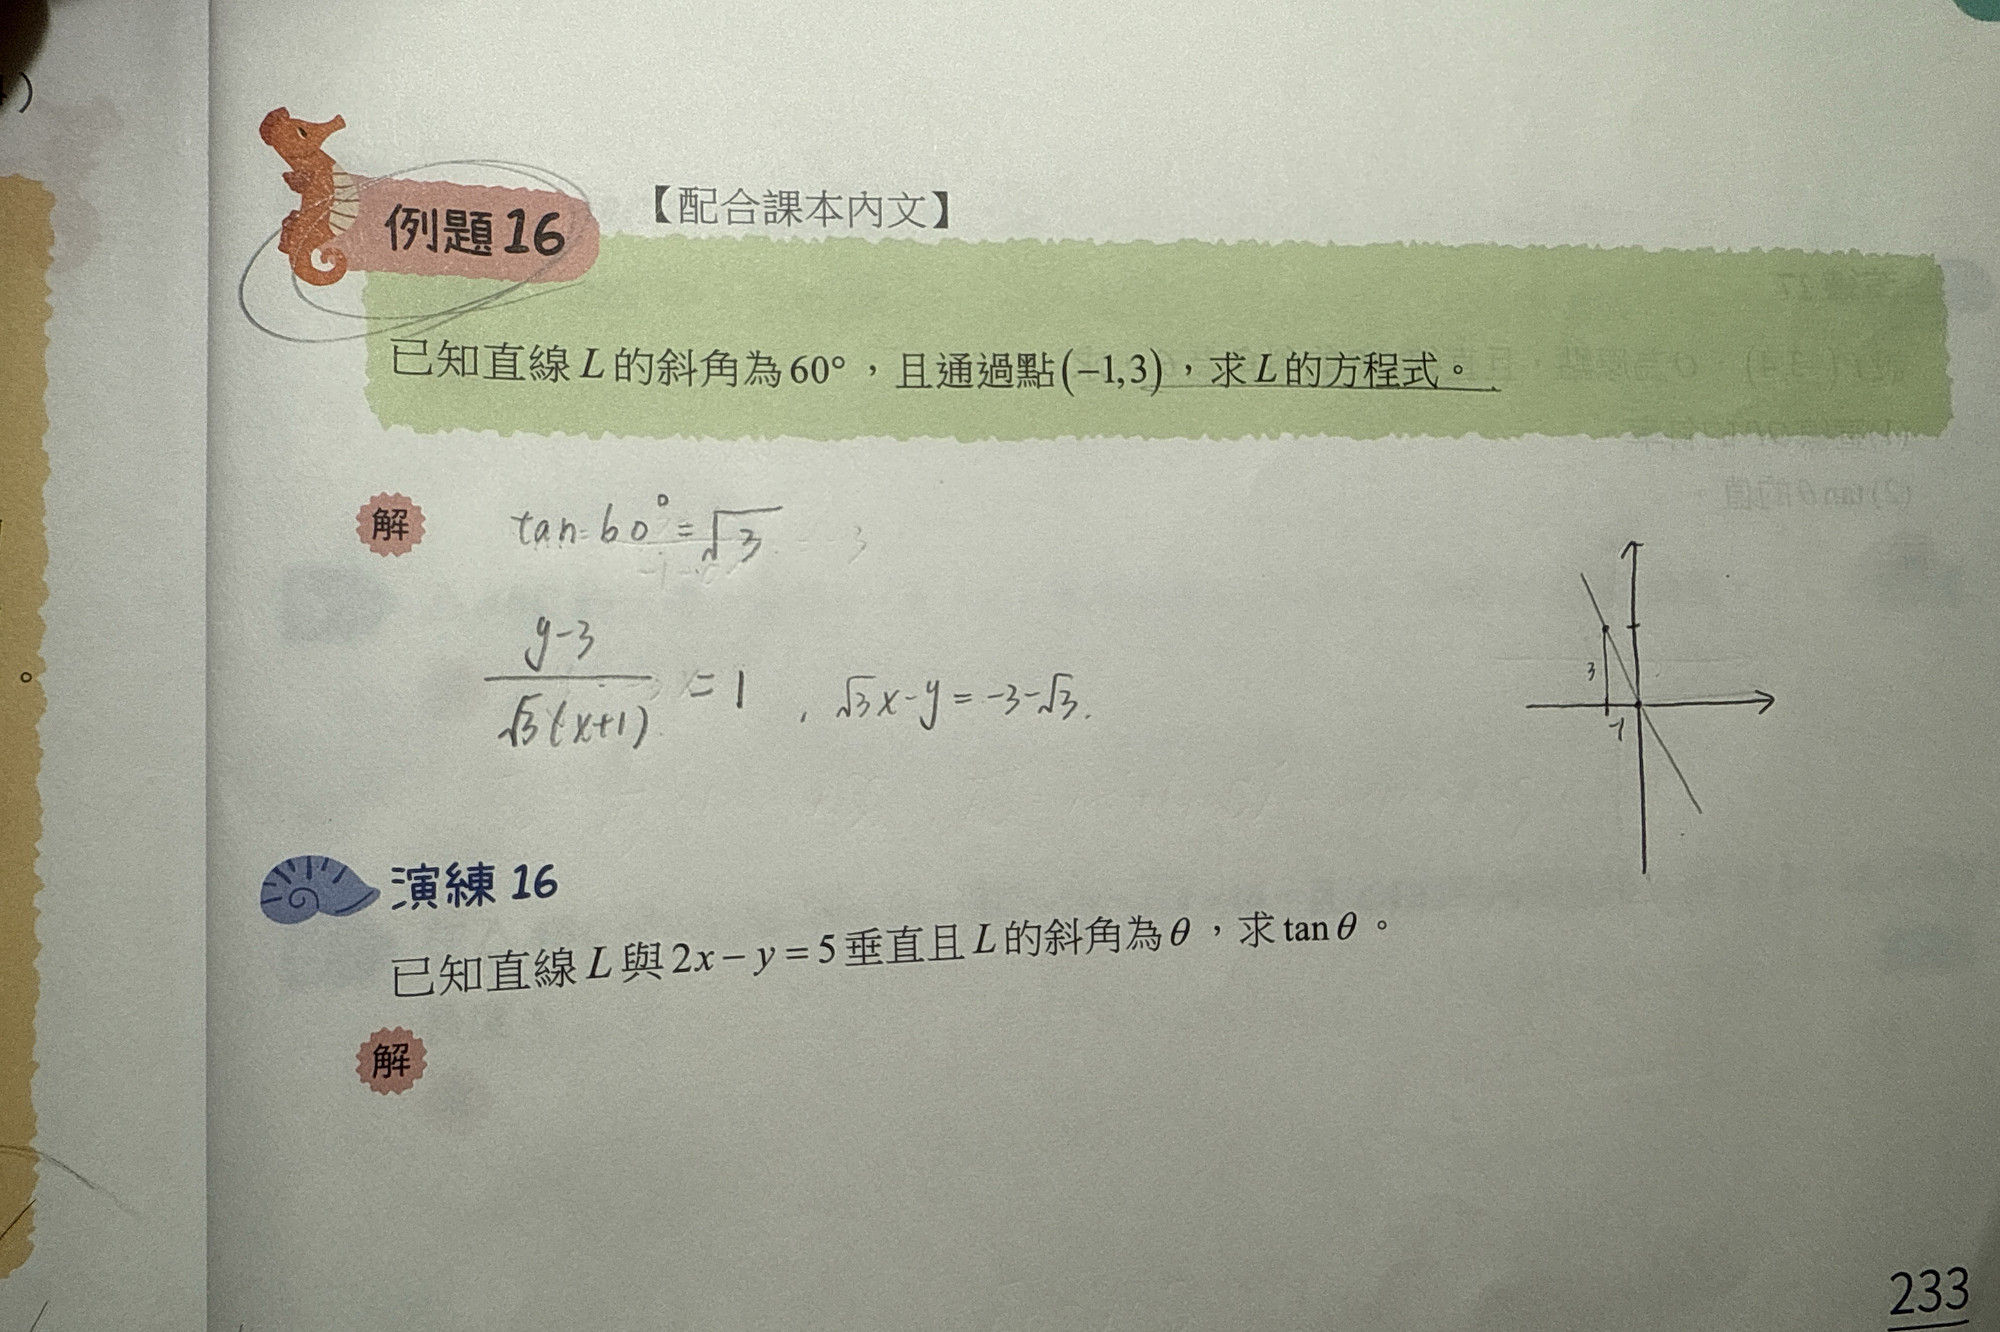 例題16 【配合課本內文】
已知直線L的斜角為60°，且通過點(−1,3)，求L的方程式。
解 tan 60° = √3
y-3
√3(x+1) = 1 , √3x-y = -3-√3.
3
-1
演練 16
已知直線L與2x−y=5垂直且L的斜角為θ，求tanθ。
解
233